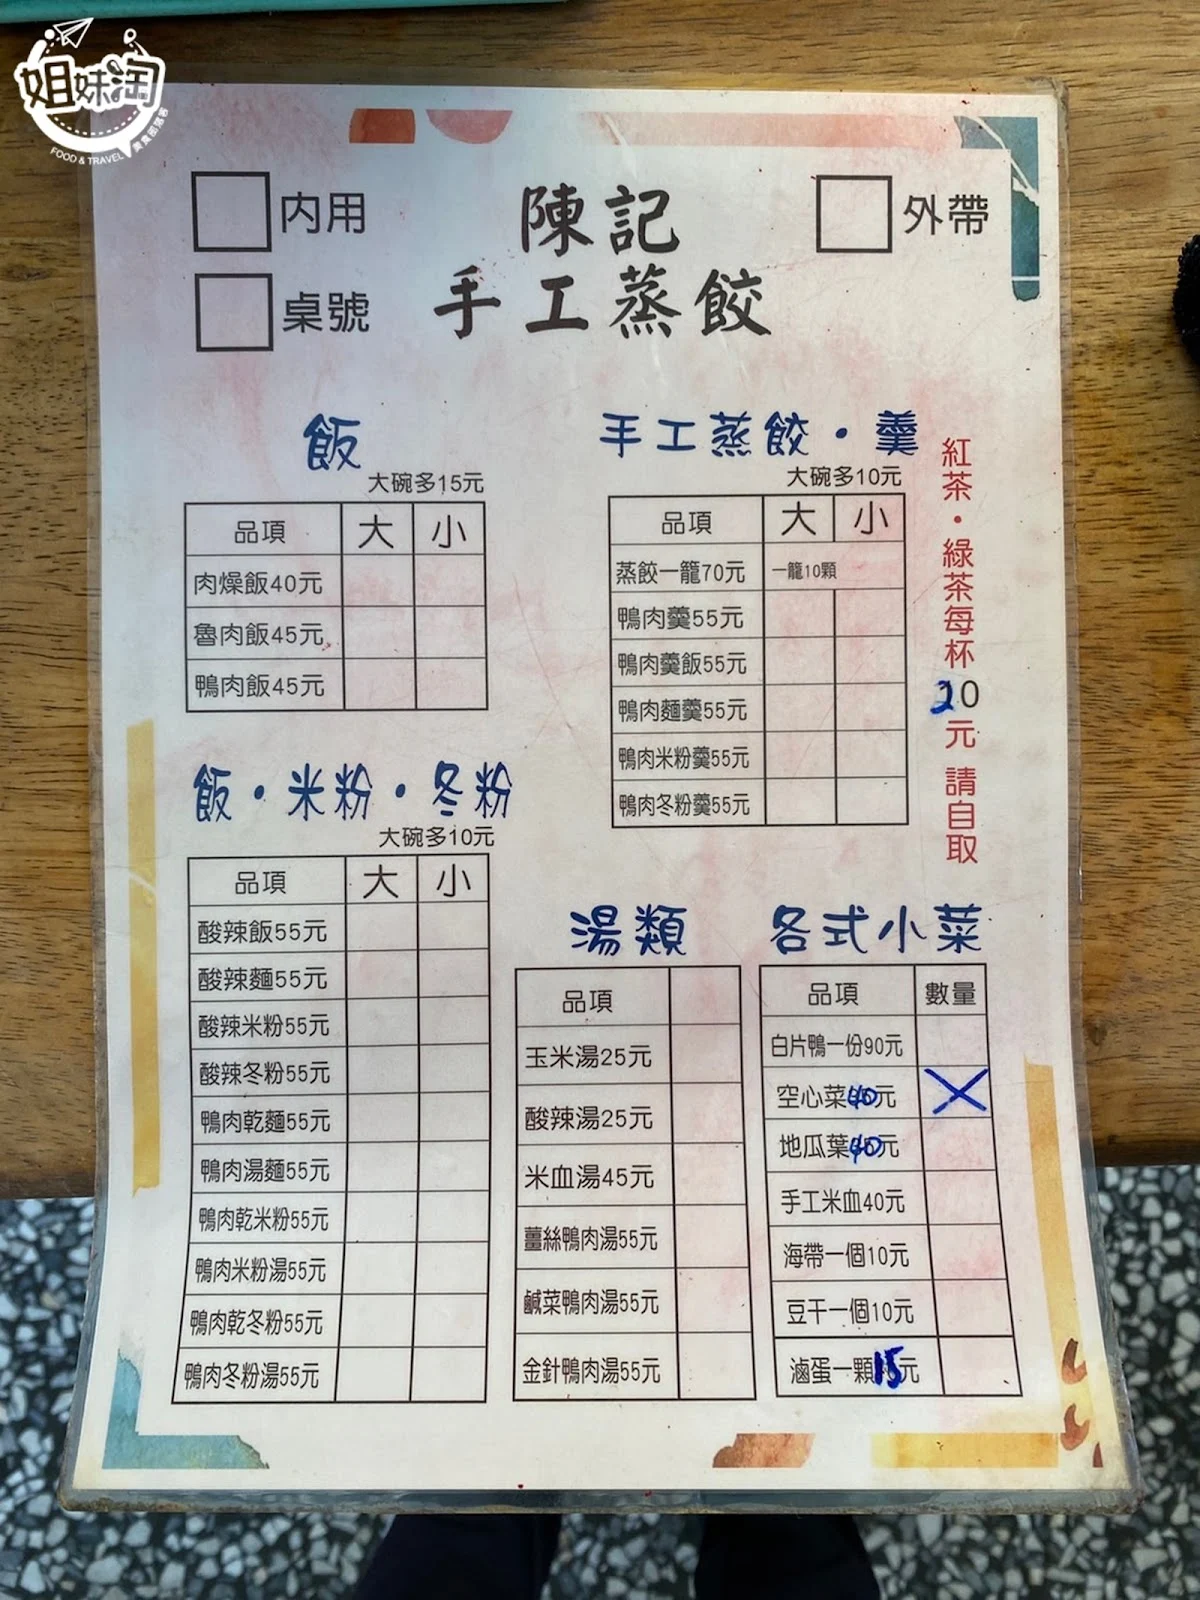 姐妹淘
FOOD & TRAVEL 美食部落客
內用
陳記
外帶
桌號
手工蒸餃
飯
大碗多15元
品項 大 小
肉燥飯40元
魯肉飯45元
鴨肉飯45元
手工蒸餃・羹
大碗多10元
品項 大 小
蒸餃一籠70元 一籠10顆
鴨肉羹55元
鴨肉羹飯55元
鴨肉麵羹55元
鴨肉米粉羹55元
鴨肉冬粉羹55元
紅茶・綠茶每杯20元 請自取
飯・米粉・冬粉
大碗多10元
品項 大 小
酸辣飯55元
酸辣麵55元
酸辣米粉55元
酸辣冬粉55元
鴨肉乾麵55元
鴨肉湯麵55元
鴨肉乾米粉55元
鴨肉米粉湯55元
鴨肉乾冬粉55元
鴨肉冬粉湯55元
湯類
品項
玉米湯25元
酸辣湯25元
米血湯45元
薑絲鴨肉湯55元
鹹菜鴨肉湯55元
金針鴨肉湯55元
各式小菜
品項 數量
白片鴨一份90元
空心菜40元
地瓜葉40元
手工米血40元
海帶一個10元
豆干一個10元
滷蛋一顆15元